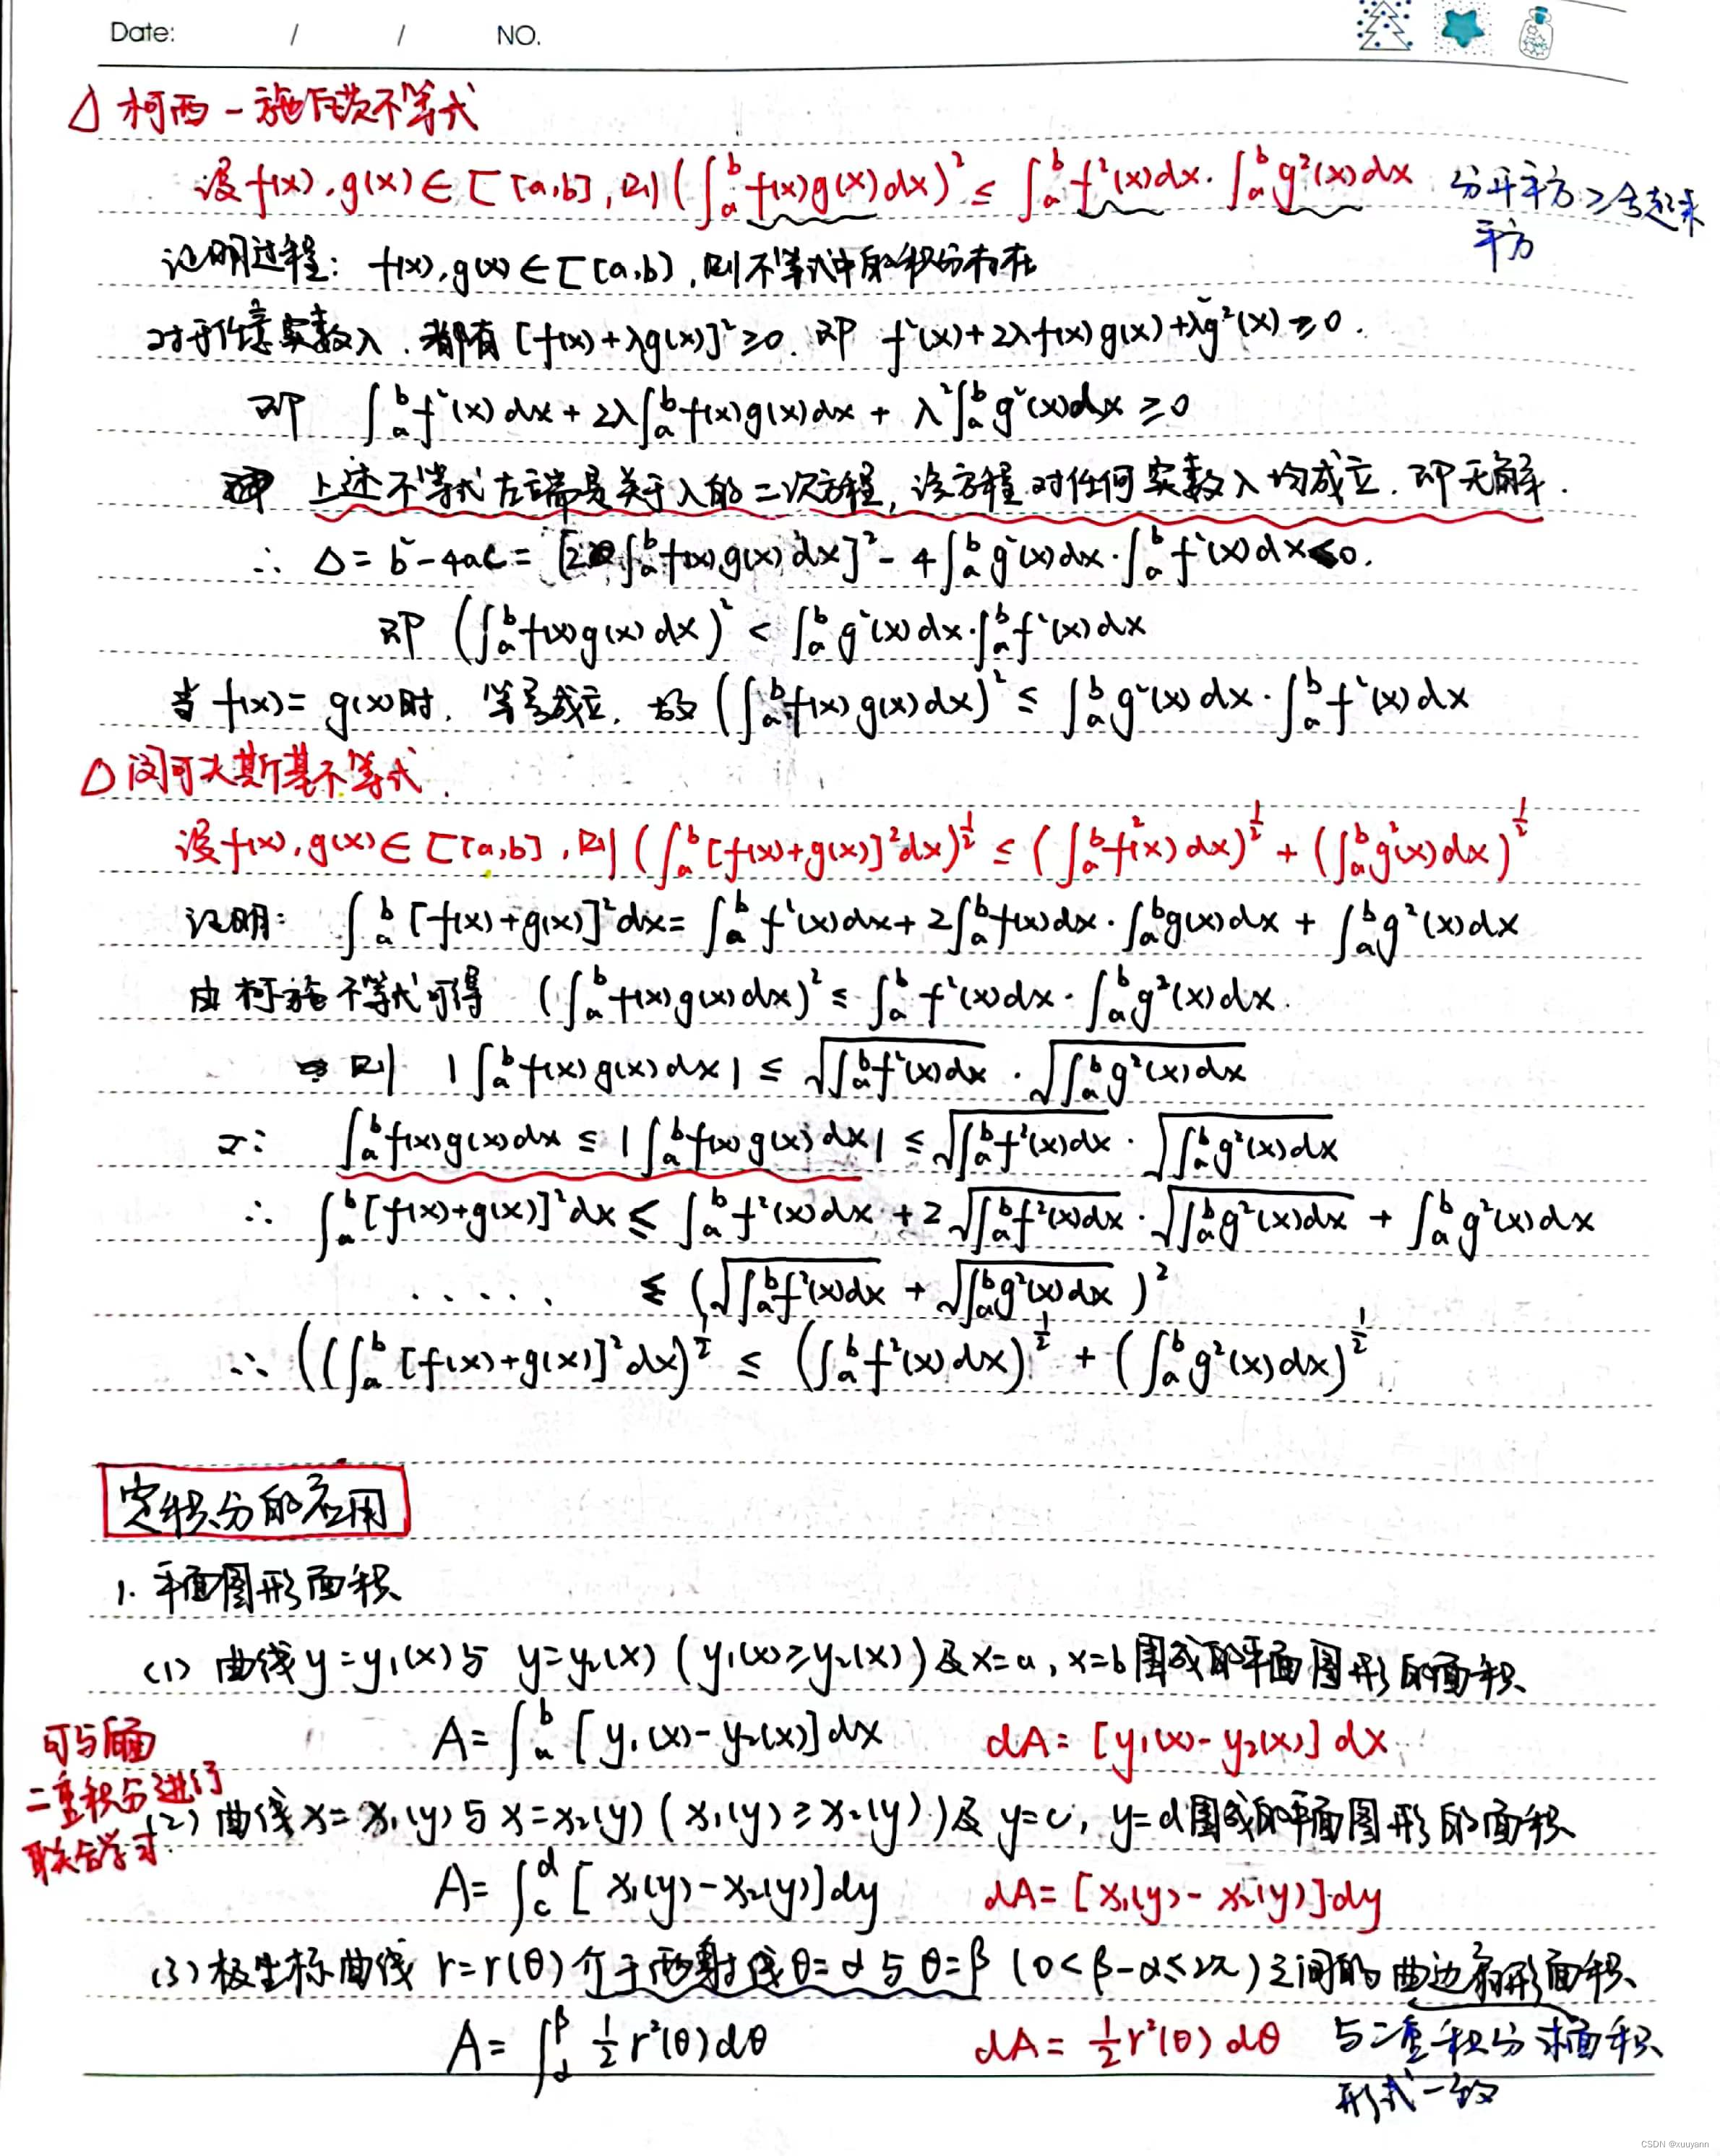 Date: / / NO.
△ 柯西-施瓦茨不等式
设f(x),g(x)∈C[a,b],则(∫_a^b f(x)g(x)dx)² ≤ ∫_a^b f²(x)dx·∫_a^b g²(x)dx 分开平方≥合起来
平方
证明过程: f(x),g(x)∈C[a,b],则不等式中的积分存在
对于任意实数λ,都有[f(x)+λg(x)]²≥0,即 f²(x)+2λf(x)g(x)+λ²g²(x)≥0.
即 ∫_a^b f²(x)dx+2λ∫_a^b f(x)g(x)dx+λ²∫_a^b g²(x)dx≥0
上述不等式左端是关于λ的二次方程,该方程对任何实数λ均成立,即无解.
∴ Δ=b²-4ac=[2∫_a^b f(x)g(x)dx]²-4∫_a^b g²(x)dx·∫_a^b f²(x)dx<0.
即 (∫_a^b f(x)g(x)dx)² < ∫_a^b g²(x)dx·∫_a^b f²(x)dx
当f(x)=g(x)时,等号成立,故(∫_a^b f(x)g(x)dx)² ≤ ∫_a^b g²(x)dx·∫_a^b f²(x)dx
△ 闵可夫斯基不等式.
设f(x),g(x)∈C[a,b],则(∫_a^b [f(x)+g(x)]²dx)^½ ≤ (∫_a^b f²(x)dx)^½+(∫_a^b g²(x)dx)^½
证明: ∫_a^b [f(x)+g(x)]²dx=∫_a^b f²(x)dx+2∫_a^b f(x)dx·∫_a^b g(x)dx+∫_a^b g²(x)dx
由柯施不等式可得 (∫_a^b f(x)g(x)dx)² ≤ ∫_a^b f²(x)dx·∫_a^b g²(x)dx.
则 |∫_a^b f(x)g(x)dx| ≤ √(∫_a^b f²(x)dx)·√(∫_a^b g²(x)dx)
又: ∫_a^b f(x)g(x)dx ≤ |∫_a^b f(x)g(x)dx| ≤ √(∫_a^b f²(x)dx)·√(∫_a^b g²(x)dx)
∴ ∫_a^b [f(x)+g(x)]²dx ≤ ∫_a^b f²(x)dx+2√(∫_a^b f²(x)dx)·√(∫_a^b g²(x)dx)+∫_a^b g²(x)dx
..... ≤ (√(∫_a^b f²(x)dx)+√(∫_a^b g²(x)dx))²
∴ ((∫_a^b [f(x)+g(x)]²dx)^½ ≤ (∫_a^b f²(x)dx)^½+(∫_a^b g²(x)dx)^½
定积分的应用
1. 平面图形面积
(1) 曲线y=y₁(x)与 y=y₂(x)(y₁(x)≥y₂(x))及x=a,x=b围成的平面图形的面积
A=∫_a^b [y₁(x)-y₂(x)]dx dA=[y₁(x)-y₂(x)]dx
可与后面
二重积分进行
联合学习
(2) 曲线x=x₁(y)与x=x₂(y)(x₁(y)≥x₂(y))及y=c,y=d围成的平面图形的面积
A=∫_c^d [x₁(y)-x₂(y)]dy dA=[x₁(y)-x₂(y)]dy
(3) 极坐标曲线 r=r(θ)介于两射线θ=α与θ=β(0<β-α≤2π)之间的曲边扇形面积
A=∫_α^β ½r²(θ)dθ dA=½r²(θ)dθ 与二重积分求面积
形式一致
CSDN @xuuyann